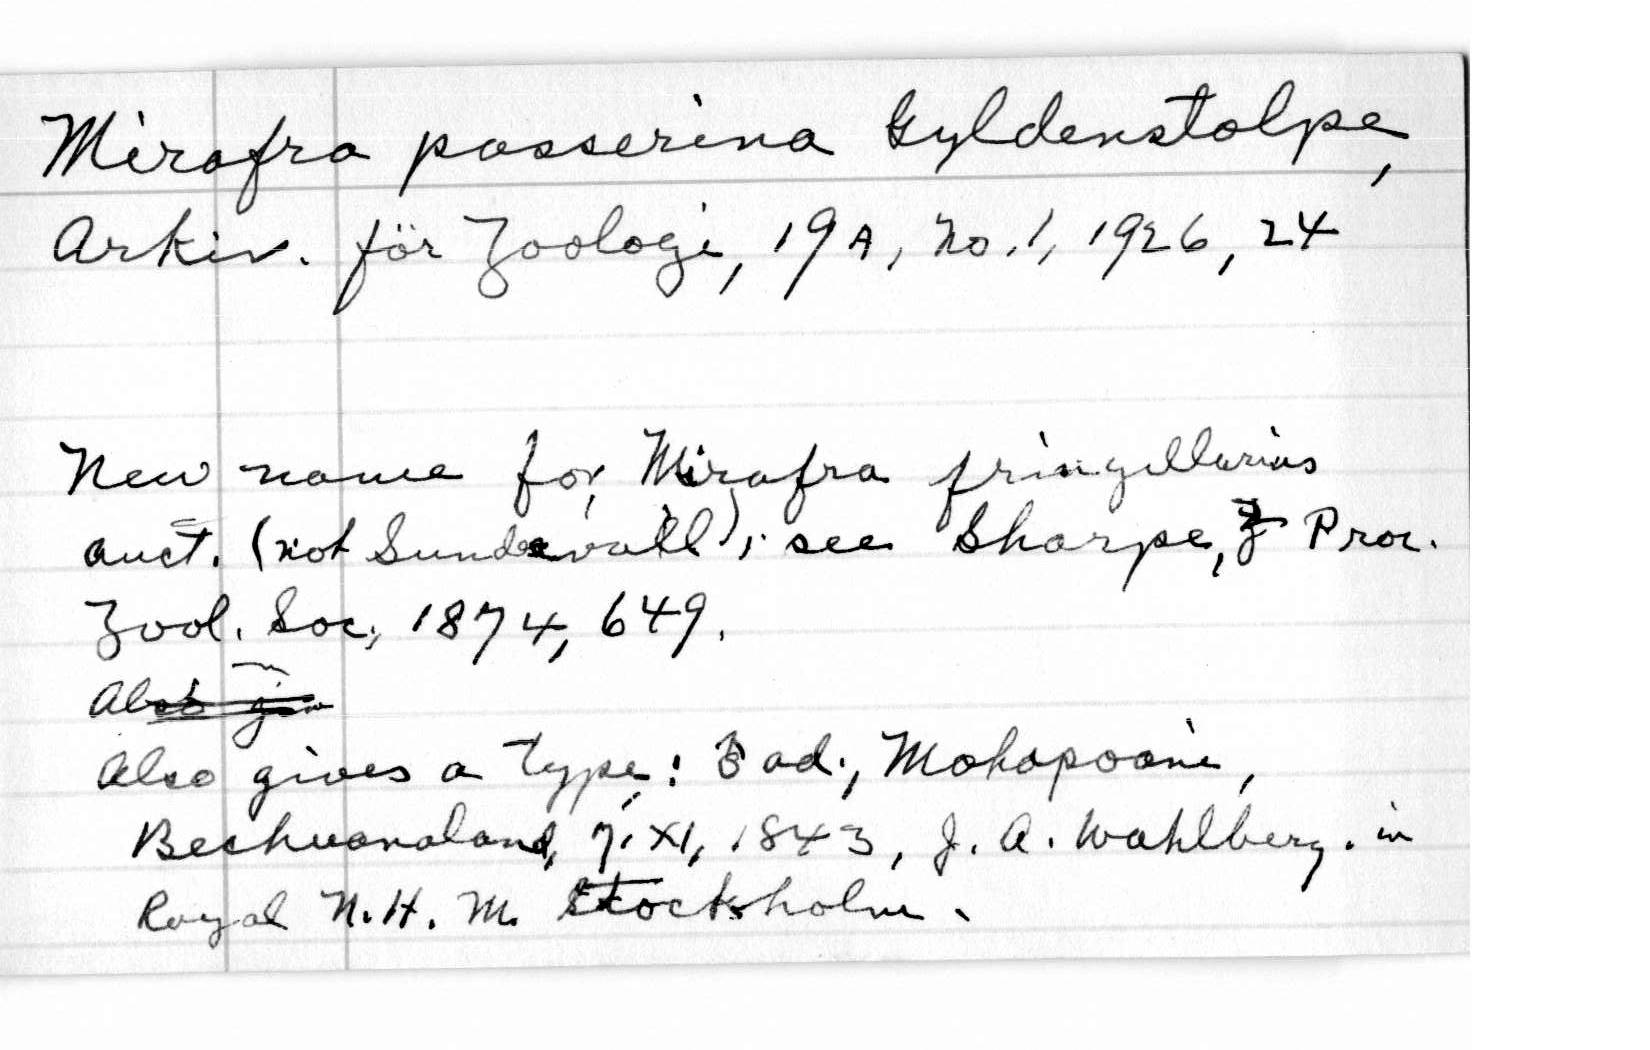 Mirafra passerina Gyldenstolpe,
Arkiv. för Zoologi, 19A, No. 1, 1926, 24
New name for Mirafra fringillarius
auct. (not Sundevall); see Sharpe, Proc.
Zool. Soc., 1874, 649.
Also
Also gives a type: ad., Mohapoani,
Bechuanaland, 7. XI, 1843, J. A. Wahlberg. in
Royal N. H. M. Stockholm.